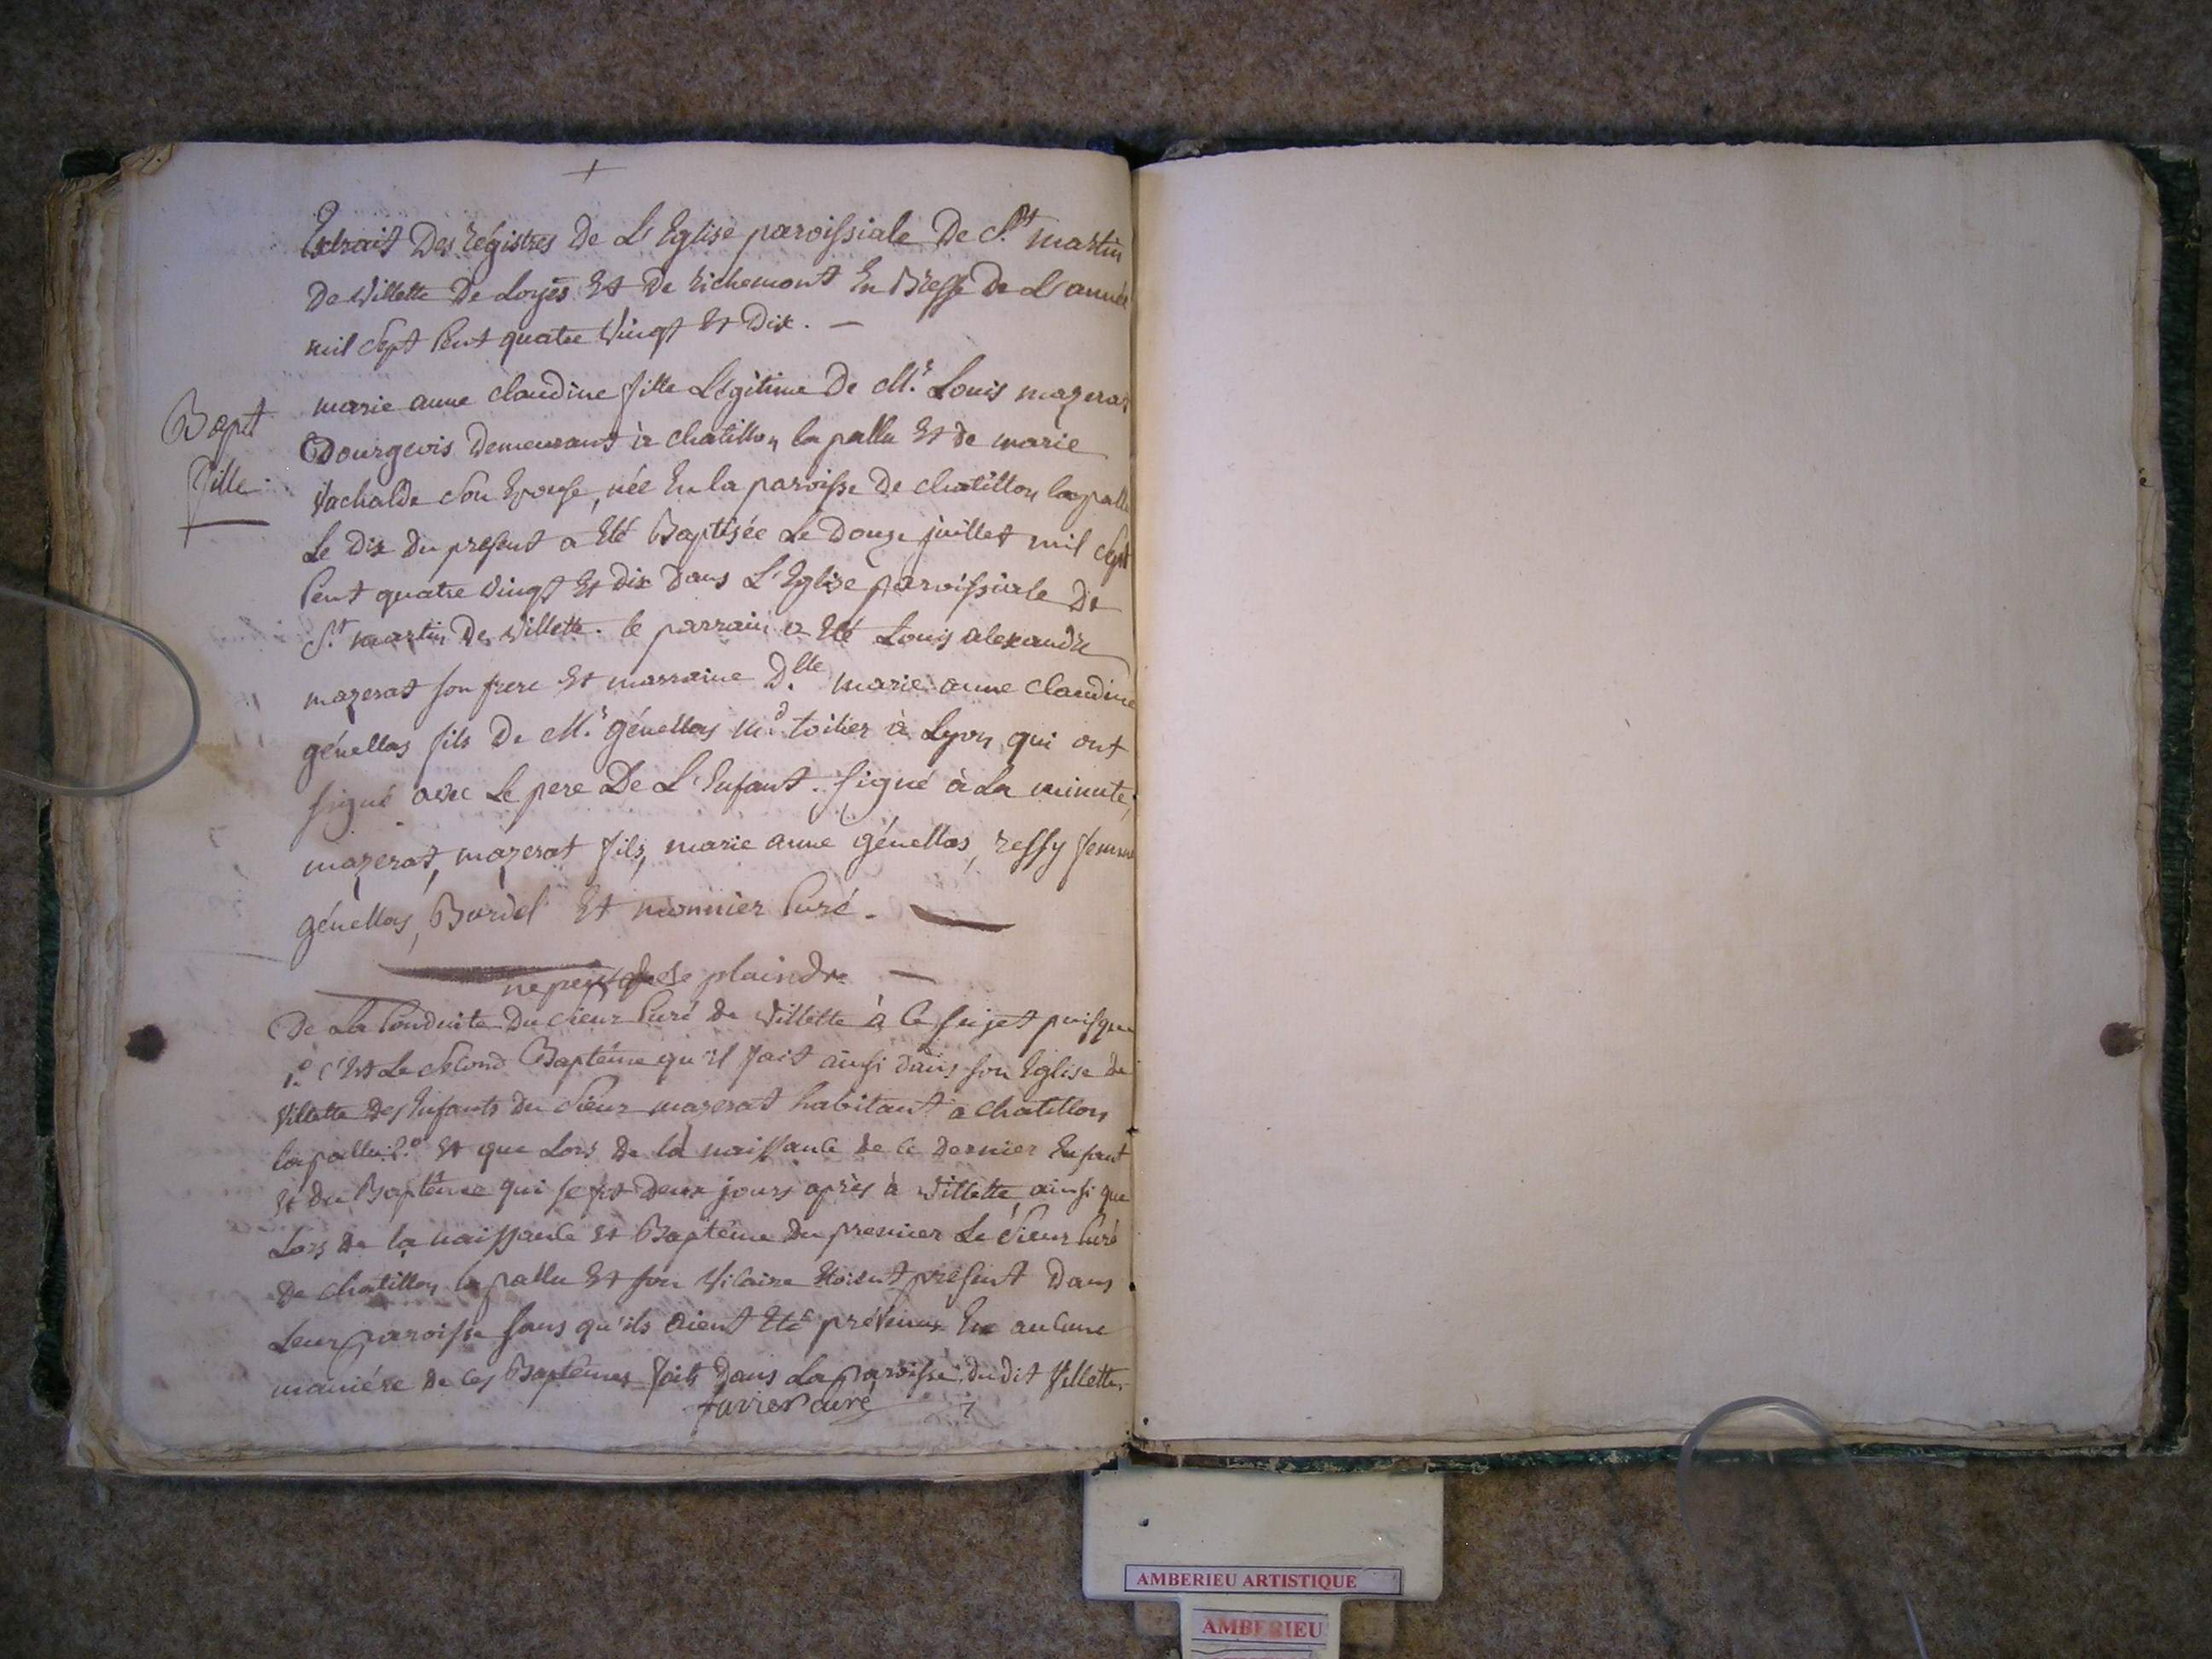 +
Extrait Des régistres De L'Eglise paroissiale De St martin
De Villette De Loyes Et De richemont En Bresse De L'année
mil Sept Cent quatre Vingt Et Dix. —
Bapt
fille.
marie anne claudine fille Légitime De Mr. Louis mazerat
Bourgeois Demeurant à chatillon la pallu Et de marie
Vachalde Son Epouse, née En la paroisse De chatillon la pallu
Le Dix Du présent a Eté Baptisée Le Douze juillet mil Sept
Cent quatre Vingt Et dix Dans L'Eglise paroissiale De
St. martin De Villette. le parrain a Eté Louis alexandre
mazerat son frere Et marraine D.lle marie anne Claudine
génellas fils De Mr. génellas md. toilier à Lyon qui ont
signé avec Le pere De L'Enfant. Signé à La minute,
mazerat, mazerat fils, marie anne génellas, ressy femme
génellas, Bardel Et monnier Curé.
ne peut se plaindre —
De La Conduite Du Sieur Curé de Villette à Ce sujet puisque
1.° C'Est Le Second Baptême qu'il fait ainsi dans son Eglise de
Villette Des Enfants du Sieur mazerat habitant a chatillon
la pallu. 2.° Et que Lors De la naissance De Ce Dernier Enfant
Et du Baptême qui se fit Deux jours après à Villette, ainsi que
Lors De la naissance Et Baptême Du premier Le Sieur Curé
De chatillon la pallu Et son Vicaire Etoient présent Dans
Leur paroisse sans qu'ils aient Eté prévenus En aucune
maniére De Ces Baptêmes faits Dans La paroisse du dit Villette.
favier curé
AMBERIEU ARTISTIQUE
AMBERIEU